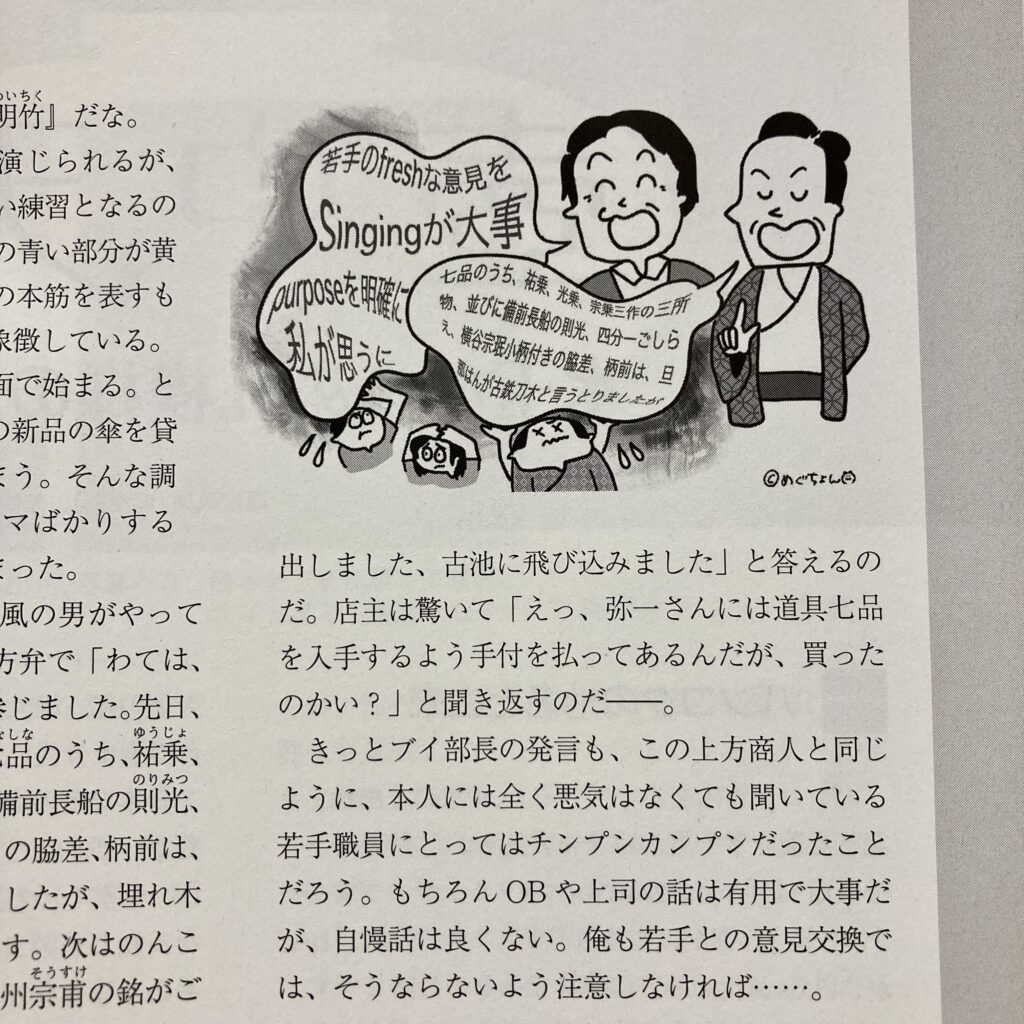 明竹』だな。
演じられるが、
い練習となるの
の青い部分が黄
の本筋を表すも
象徴している。
面で始まる。と
の新品の傘を貸
まう。そんな調
マばかりする
まった。
風の男がやって
方弁で「わては、
参じました。先日、
品のうち、祐乗、
備前長船の則光、
の脇差、柄前は、
したが、埋れ木
す。次はのんこ
州宗甫の銘がご
若手のfreshな意見を
Singingが大事
purposeを明確に
私が思うに
七品のうち、祐乗、光乗、宗乗三作の三所
物、並びに備前長船の則光、四分一ごしら
え、横谷宗珉小柄付きの脇差、柄前は、旦
那はんが古鉄刀木と言うとりましたが
©めぐちょん
出しました、古池に飛び込みました」と答えるの
だ。店主は驚いて「えっ、弥一さんには道具七品
を入手するよう手付を払ってあるんだが、買った
のかい？」と聞き返すのだ――。
きっとブイ部長の発言も、この上方商人と同じ
ように、本人には全く悪気はなくても聞いている
若手職員にとってはチンプンカンプンだったこと
だろう。もちろん OB や上司の話は有用で大事だ
が、自慢話は良くない。俺も若手との意見交換で
は、そうならないよう注意しなければ……。